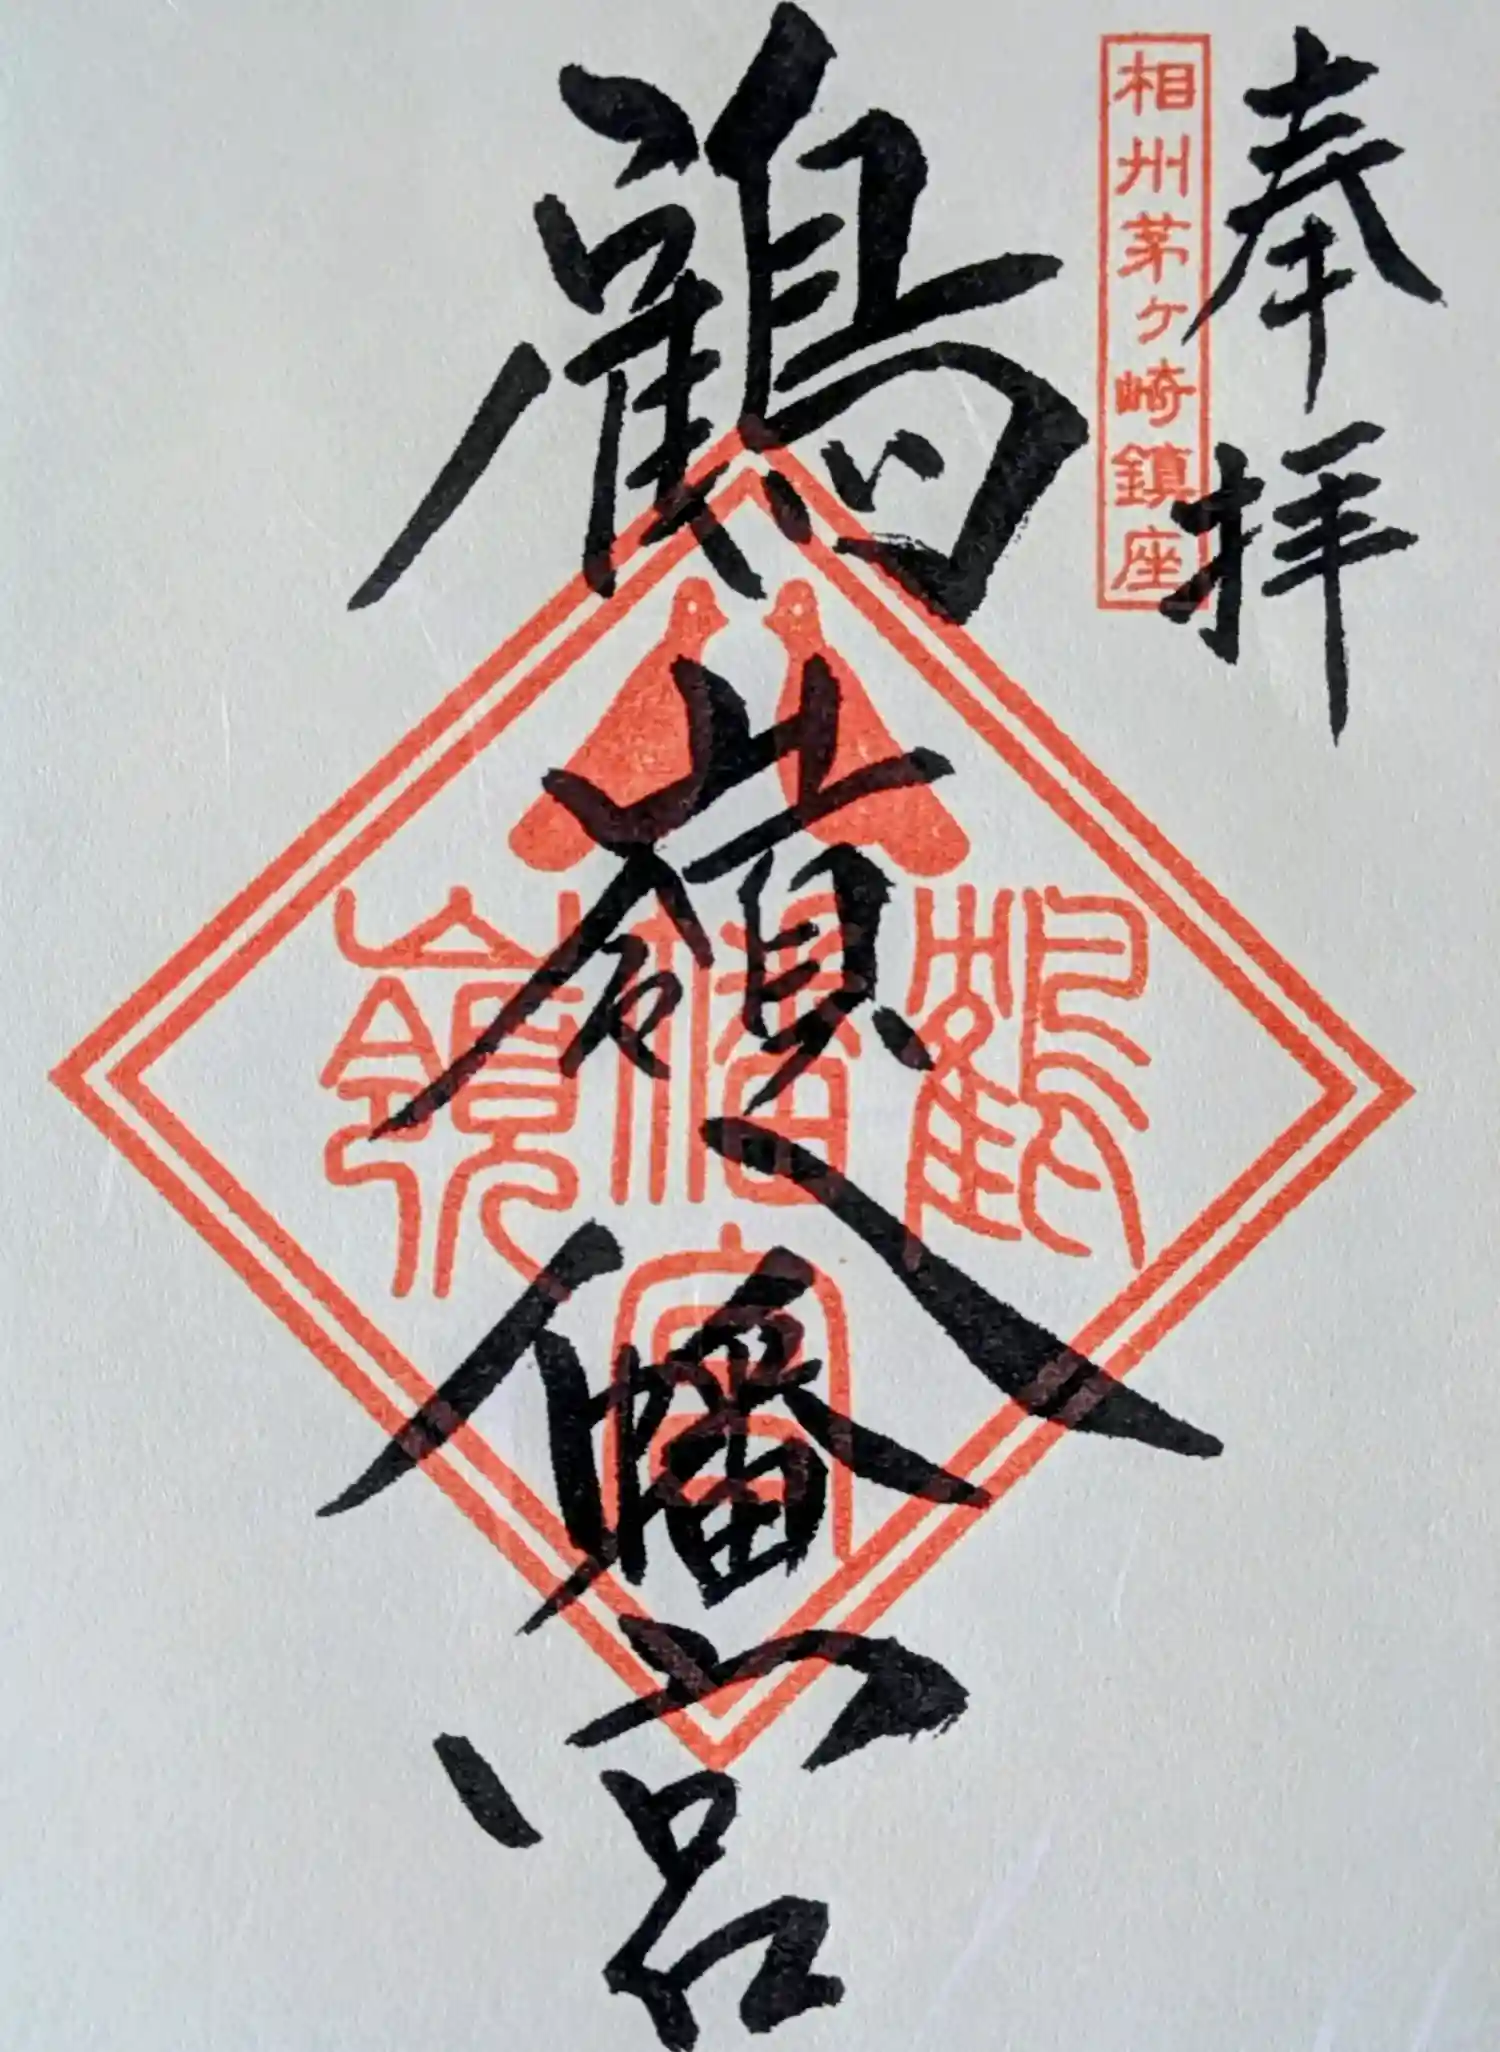 奉拝
相州茅ヶ崎鎮座
鶴嶺八幡宮
鶴
幡
嶺
宮